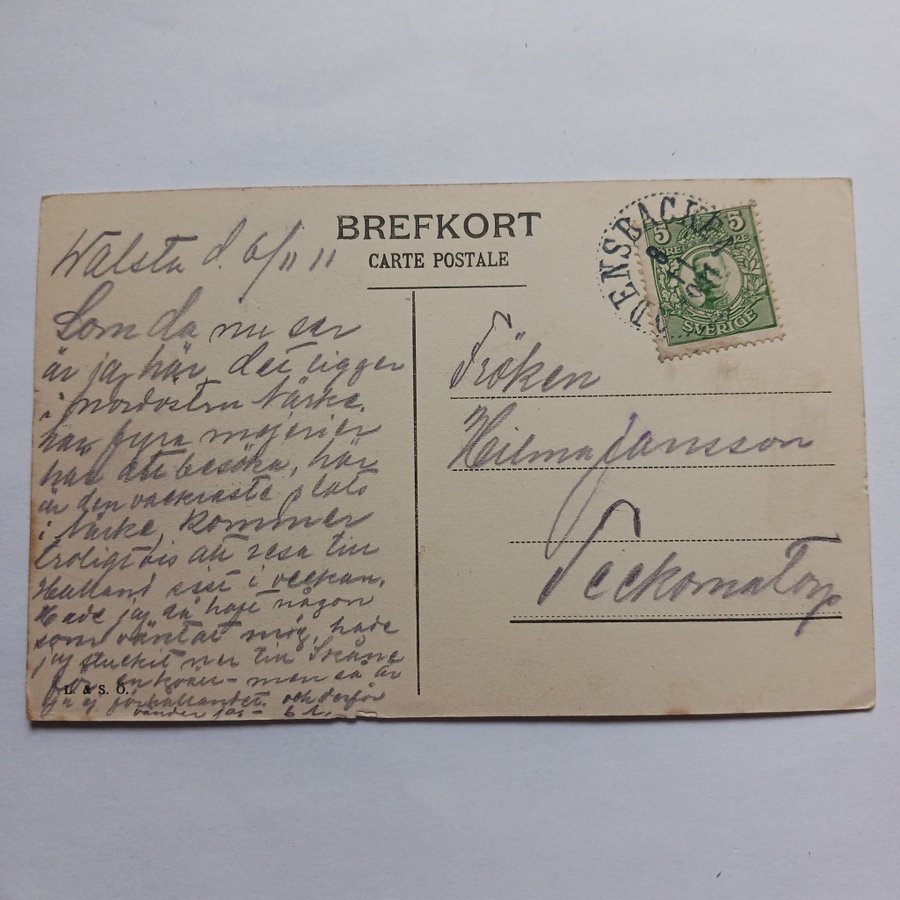 BREFKORT
CARTE POSTALE
Walsta d. 6/11 11
Som du nu ser
är jag här det ligger
i nordöstra Närke.
har fyra mejerier
här att besöka, här
är den vackraste plats
i Närke, kommer
troligtvis att resa till
Halland sist i veckan.
Hade jag då haft någon
som väntat mig, hade
jag stuckit ner till Skåne
för en kväll - men så är
ju ej förhållandet. och derför
vänder jag -
L. & S. Ö.
ODENSBACKEN
8 11
5 5
SVERIGE
Fröken
Hilma Jansson
Teckomatorp